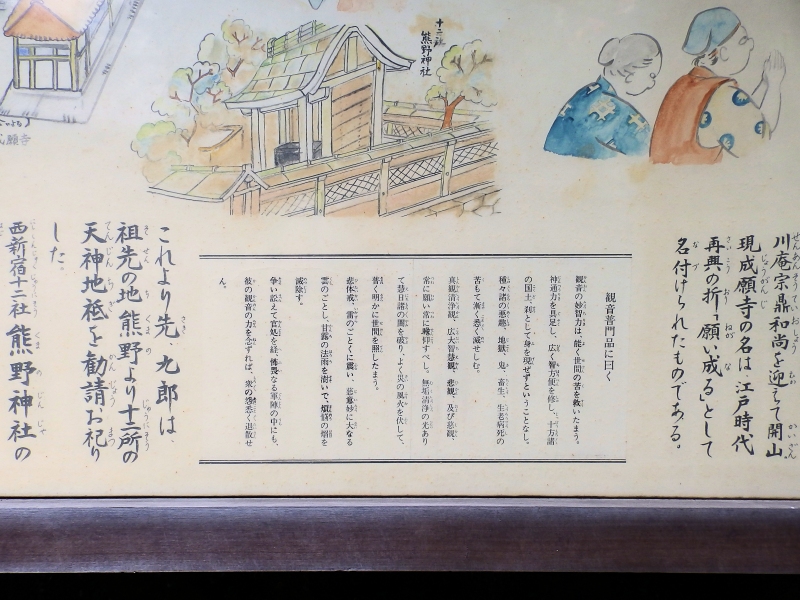 十二社
熊野神社
願寺
川庵宗鼎和尚を迎えて開山
現成願寺の名は、江戸時代
再興の折、「願い成る」として
名付けられたものである。
観音普門品に曰く
観音の妙智力は、能く世間の苦を救いたまう。
神通力を具足し、広く智方便を修し、十方諸
の国土、刹として身を現ぜずということなし。
種々諸の悪趣、地獄、鬼、畜生、生老病死の
苦もて漸く悉く滅せしむ。
真観清浄観、広大智慧観、悲観、及び慈観
常に願い常に瞻仰すべし、無垢清浄の光あり
て慧日諸の闇を破り、よく災の風火を伏して、
普く明かに世間を照したまう。
悲体戒、雷のごとくに震い、慈意妙に大なる
雲のごとし、甘露の法雨を澍いで、煩悩の焔を
滅除す。
争い訟えて官処を経、怖畏なる軍陣の中にも、
彼の観音の力を念ずれば、衆の怨悉く退散せ
ん。
これより先、九郎は、
祖先の地熊野より十二所の
天神地祇を勧請、お祀り
した。
西新宿十二社熊野神社の